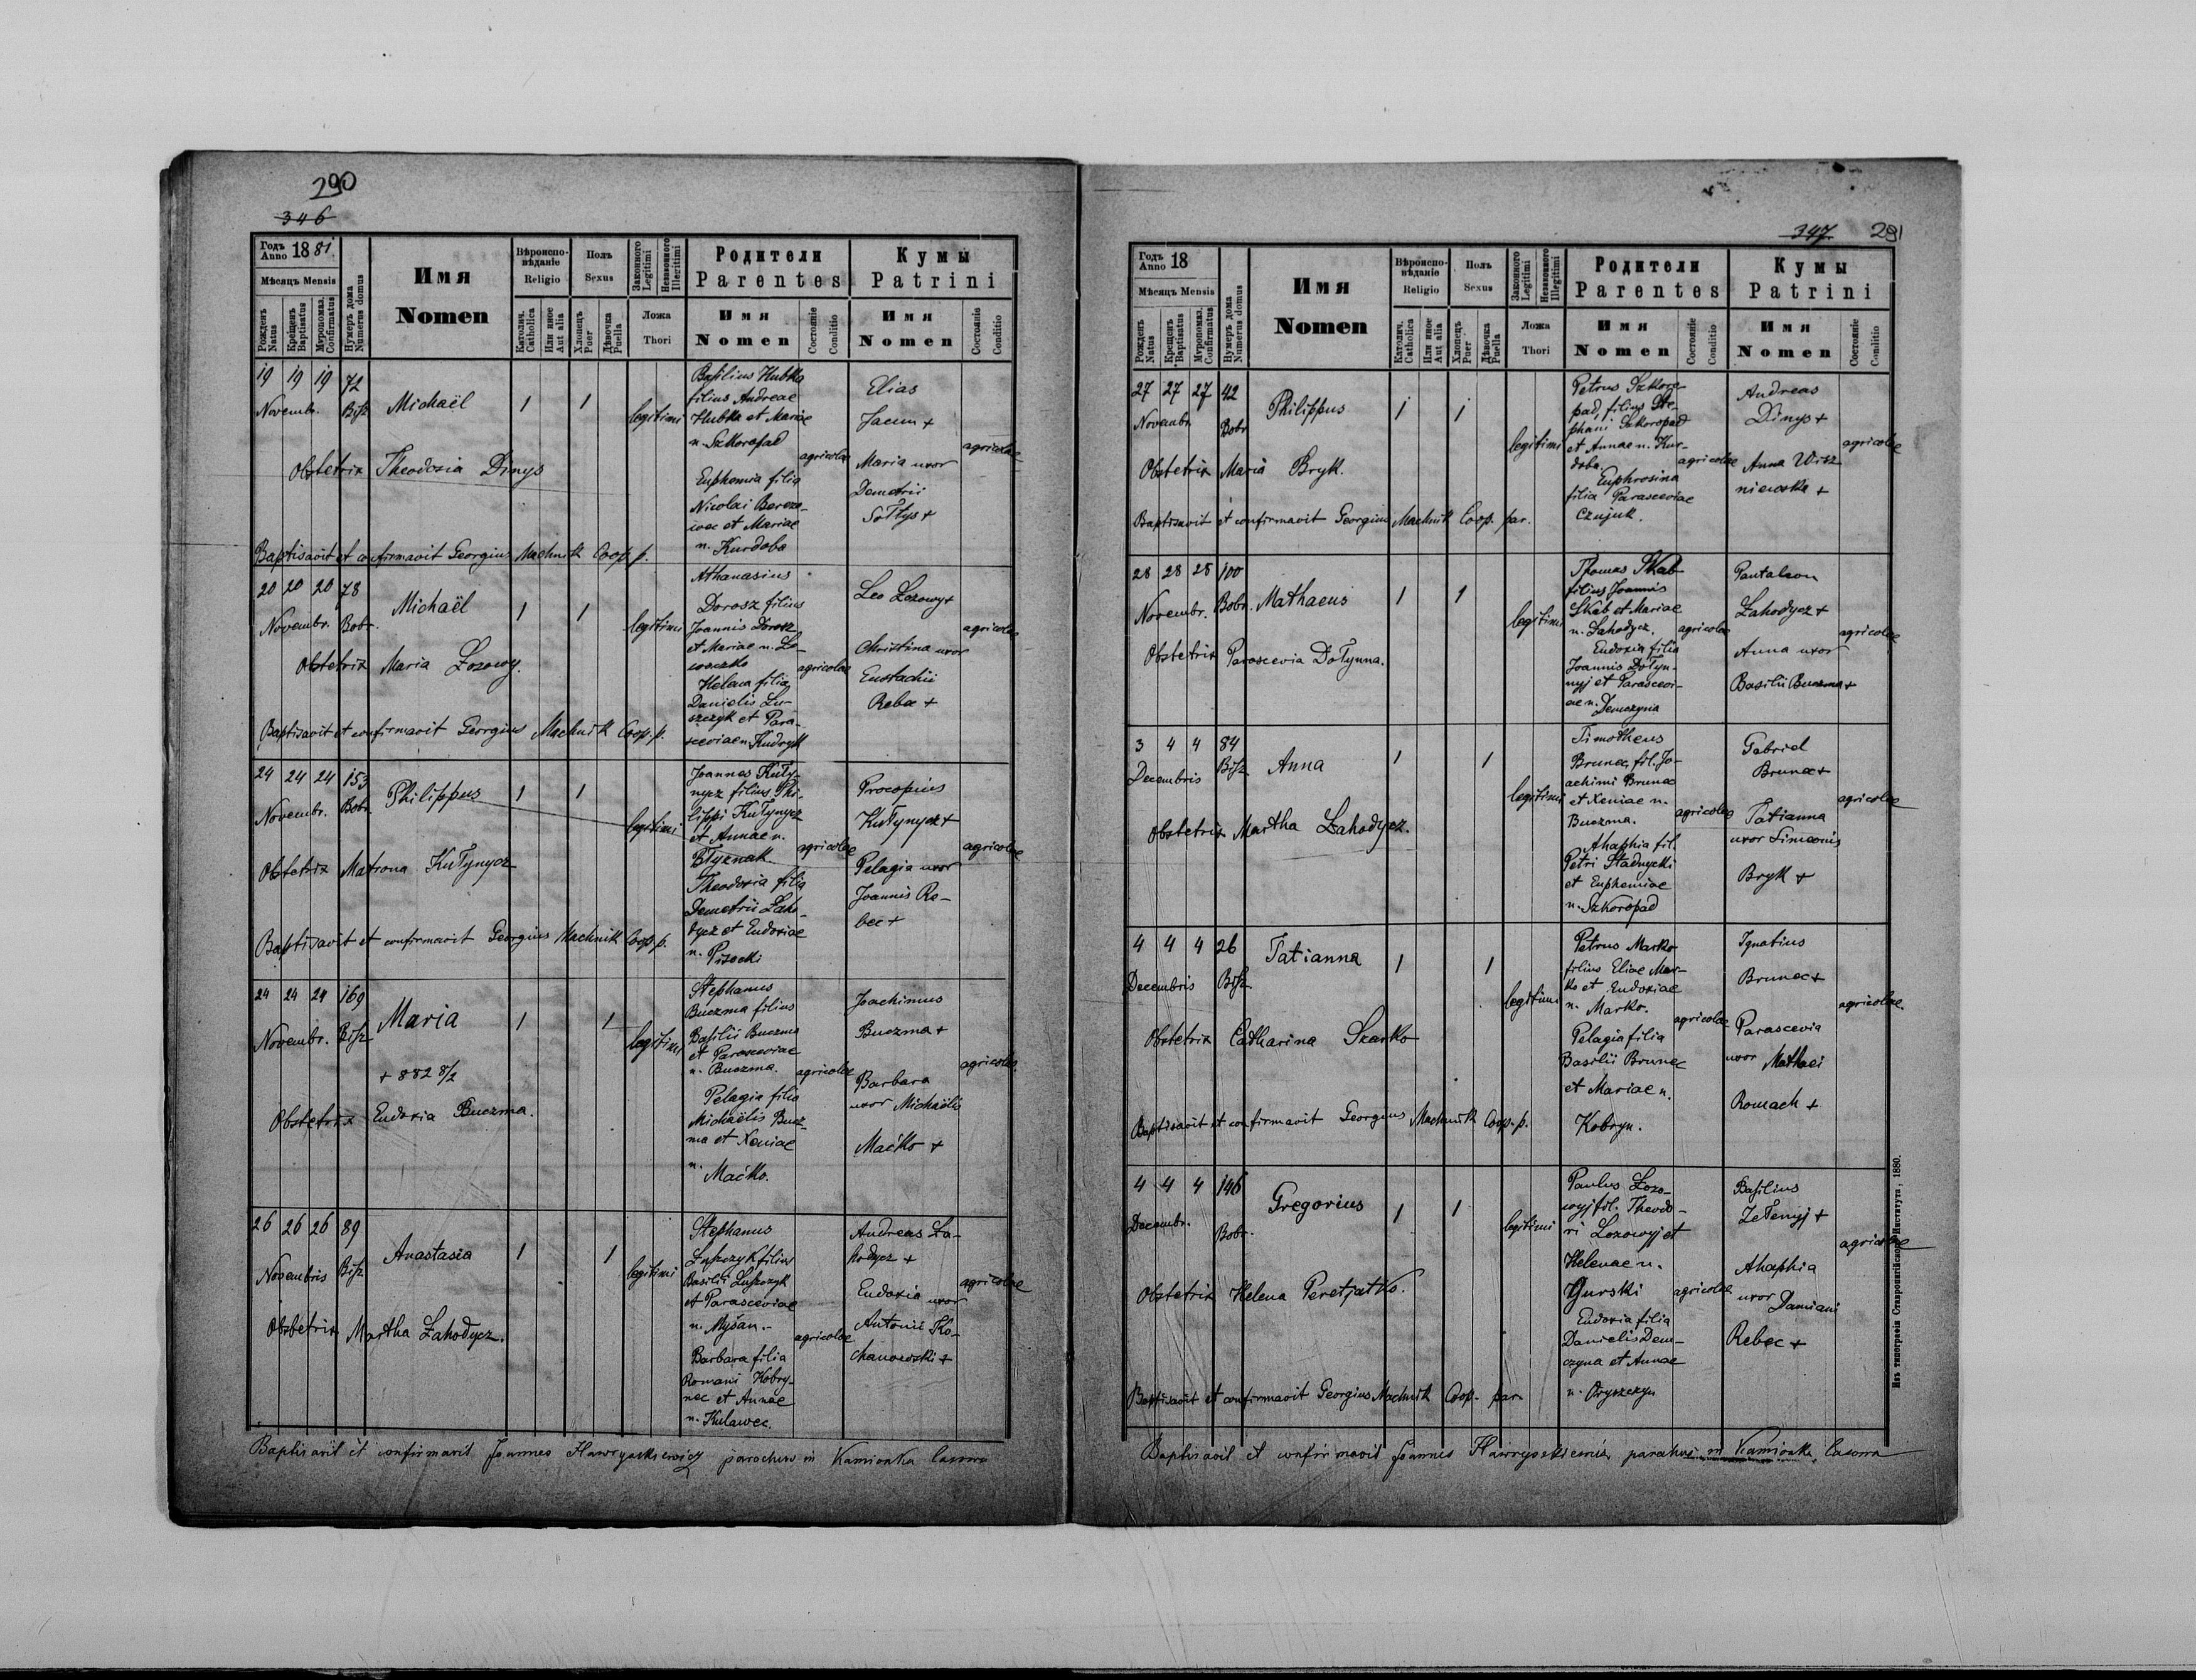 290
346
Годъ Anno 1881.
Мѣсяцъ Mensis
Рожденъ Natus
Крещенъ Baptisatus
Мѵропомаз. Confirmatus
Нумеръ дома Numerus domus
Имя
Nomen
Вѣроиспо-
вѣданіе
Religio
Католич. Catholica
Или иное Aut alia
Полъ
Sexus
Хлопецъ Puer
Дѣвочка Puella
Законного Legitimi
Незаконного Illegitimi
Ложа
Thori
Родители
Parentes
Имя
Nomen
Состояніе Conditio
Кумы
Patrini
Имя
Nomen
Состояніе Conditio
19 19 19 72
Novembr. Bisz
Michaël
1 1
legitimi
Basilius Hubka
filius Andreae
Hubka et Mariae
n. Szkoropad
Euphemia filia
Nicolai Berezo-
wec et Mariae
n. Kurdoba
agricolae
Elias
Jacun +
Maria uxor
Demetrii
Sołtys +
agricolae
Obstetrix Theodosia Dinys
Baptisavit et confirmavit Georgius Machnik Coop. p.
20 20 20 78
Novembr. Bobr.
Michaël
1 1
legitimi
Athanasius
Dorosz filius
Joannis Dorosz
et Mariae n. Le-
waczko
Helena filia
Danielis Lu-
szczyk et Para-
sceviae n. Kudryk
agricolae
Leo Łozowy +
Christina uxor
Eustachii
Rebec +
agricolae
Obstetrix Maria Łozowy.
Baptisavit et confirmavit Georgius Machnik Coop. p.
24 24 24 153
Novembr. Bobr.
Philippus
1 1
legitimi
Joannes Kuły-
nycz filius Phi-
lippi Kułynycz
et Annae n.
Błyznak
Theodosia filia
Demetrii Zaho-
dycz et Eudoxiae
n. Pisecki
agricolae
Procopius
Kułynycz +
Pelagia uxor
Joannis Re-
bec +
agricolae
Obstetrix Matrona Kułynycz
Baptisavit et confirmavit Georgius Machnik Coop. p.
24 24 24 169
Novembr. Bisz
Maria
1 1
legitimi
+ 882 8/2
Stephanus
Buczma filius
Basilii Buczma
et Parasceviae
n. Buczma.
Pelagia filia
Michaëlis Bucz-
ma et Xeniae
n.
Maćko.
agricolae
Joachimus
Buczma +
Barbara
uxor Michaëlis
Maćko +
agricolae
Obstetrix Eudoxia Buczma.
26 26 26 89
Novembris Bisz
Anastasia
1 1
legitimi
Stephanus
Łuszczyk filius
Basilii Łuszczyk
et Parasceviae
n. Myšan.-
Barbara filia
Romani Kobry-
nec et Annae
n. Kulawec.
agricolae
Andreas Za-
hodycz +
Eudoxia uxor
Antonii Ko-
chanowski +
agricolae
Obstetrix Martha Zahodycz.
Baptisavit et confirmavit Joannes Hawryszkiewicz parochus in Kamionka lasowa
347 291
Годъ Anno 18
Мѣсяцъ Mensis
Рожденъ Natus
Крещенъ Baptisatus
Мѵропомаз. Confirmatus
Нумеръ дома Numerus domus
Имя
Nomen
Вѣроиспо-
вѣданіе
Religio
Католич. Catholica
Или иное Aut alia
Полъ
Sexus
Хлопецъ Puer
Дѣвочка Puella
Законного Legitimi
Незаконного Illegitimi
Ложа
Thori
Родители
Parentes
Имя
Nomen
Состояніе Conditio
Кумы
Patrini
Имя
Nomen
Состояніе Conditio
27 27 27 42
Novembr. Bobr
Philippus
1 1
legitimi
Petrus Szkoro-
pad, filius Ste-
phani Szkoropad
et Annae n. Kur-
doba.
Euphrosina
filia Parasceviae
Czujuk.
agricolae
Andreas
Dinys +
Anna Wisz
niewska +
agricolae
Obstetrix Maria Bryk.
Baptisavit et confirmavit Georgius Machnik Coop. par.
28 28 28 100
Novembr. Bobr.
Mathaeus
1 1
legitimi
Thomas Skab
filius Joannis
Skab et Mariae
n. Zahodycz.
Eudoxia filia
Joannis Dołyn-
nyj et Parascevi-
ae n.
Demczyna
agricolae
Pantaleon
Zahodycz +
Anna uxor
Basilii Buczma +
agricolae
Obstetrix Parascevia Dołynna.
3 4 4 84
Decembris Bisz
Anna
1 1
legitimi
Timotheus
Brunec, fil. Jo-
achimi Brunec
et Xeniae n.
Buczma.
Ahaphia fil.
Petri Stadnycki
et Euphemiae
n. Szkoropad
agricolae
Gabriel
Brunec +
Tatianna
uxor Simeonis
Bryk +
agricolae
Obstetrix Martha Zahodycz.
4 4 4 26
Decembris Bisz
Tatianna
1 1
legitimi
Petrus Marko
filius Eliae Mar-
ko et Eudoxiae
n. Marko.
Pelagia filia
Basilii Brunec
et Mariae n.
Kobryn.
agricolae
Ignatius
Brunec +
Parascevia
uxor Mathaei
Romach +
agricolae.
Obstetrix Catharina Szarko
Baptisavit et confirmavit Georgius Machnik Coop. p.
4 4 4 146
Decembr. Bobr.
Gregorius
1 1
legitimi
Paulus Łozo-
wyj fil. Theodo-
ri Łozowyj et
Helenae n.
Gurski
Eudoxia filia
Danielis Dem-
czyna et Annae
n. Oryszczyn
agricolae
Basilius
Zełenyj +
Ahaphia
uxor Damiani
Rebec +
agricolae
Obstetrix Helena Peretjatko.
Baptisavit et confirmavit Georgius Machnik Coop. par.
Baptisavit et confirmavit Joannes Hawryszkiewicz parochus in Kamionka lasowa
Изъ типографіи Ставропигійского Института, 1880.